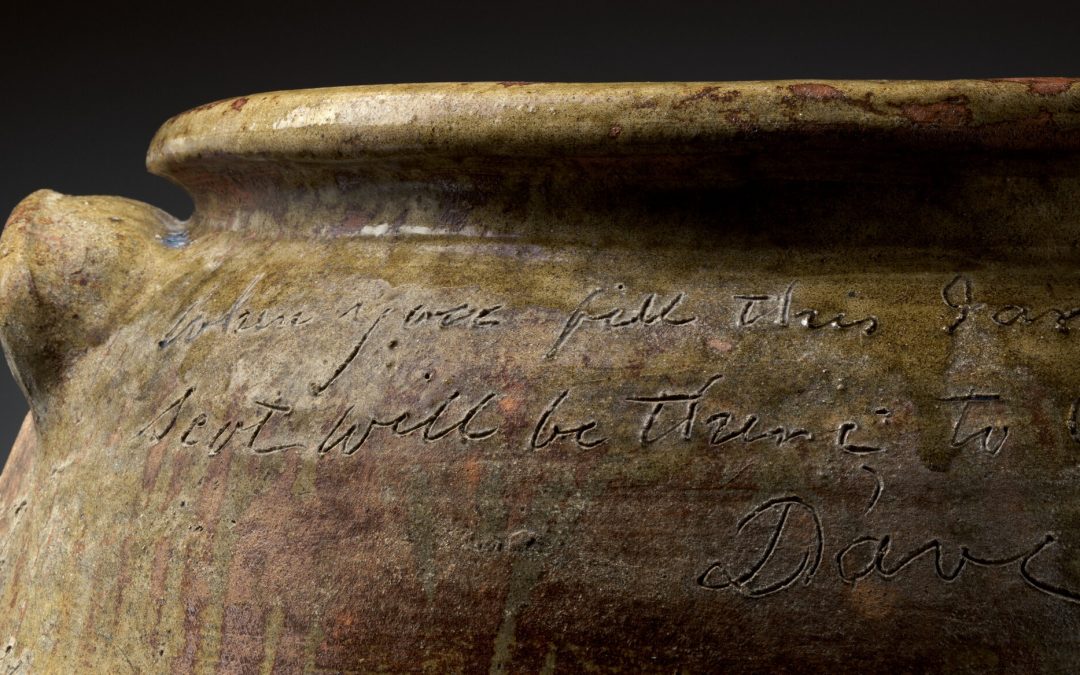 when you fill this Jar
Scot will be there; to
Dave